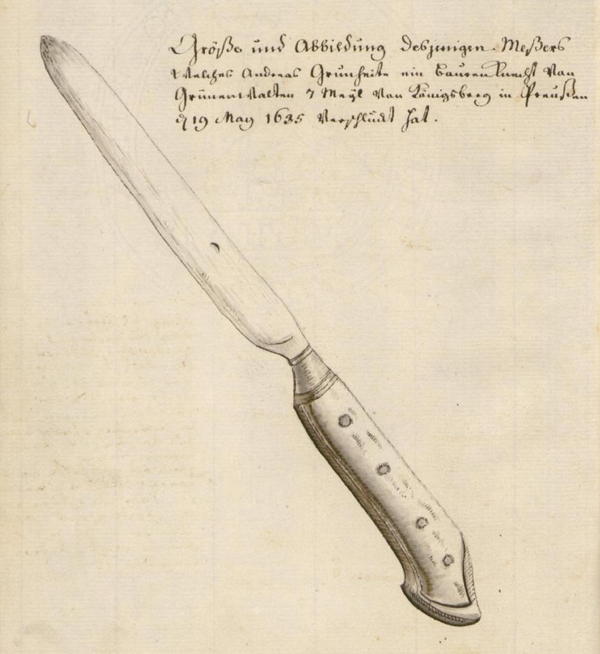 Größe und Abbildung desjenigen Meßers
Welches Andreas Grunheite ein baurenKnecht Van
GrünenWalten 7 Meyl Van Königsberg in Preußen
19 May 1635 Verschluct hat.